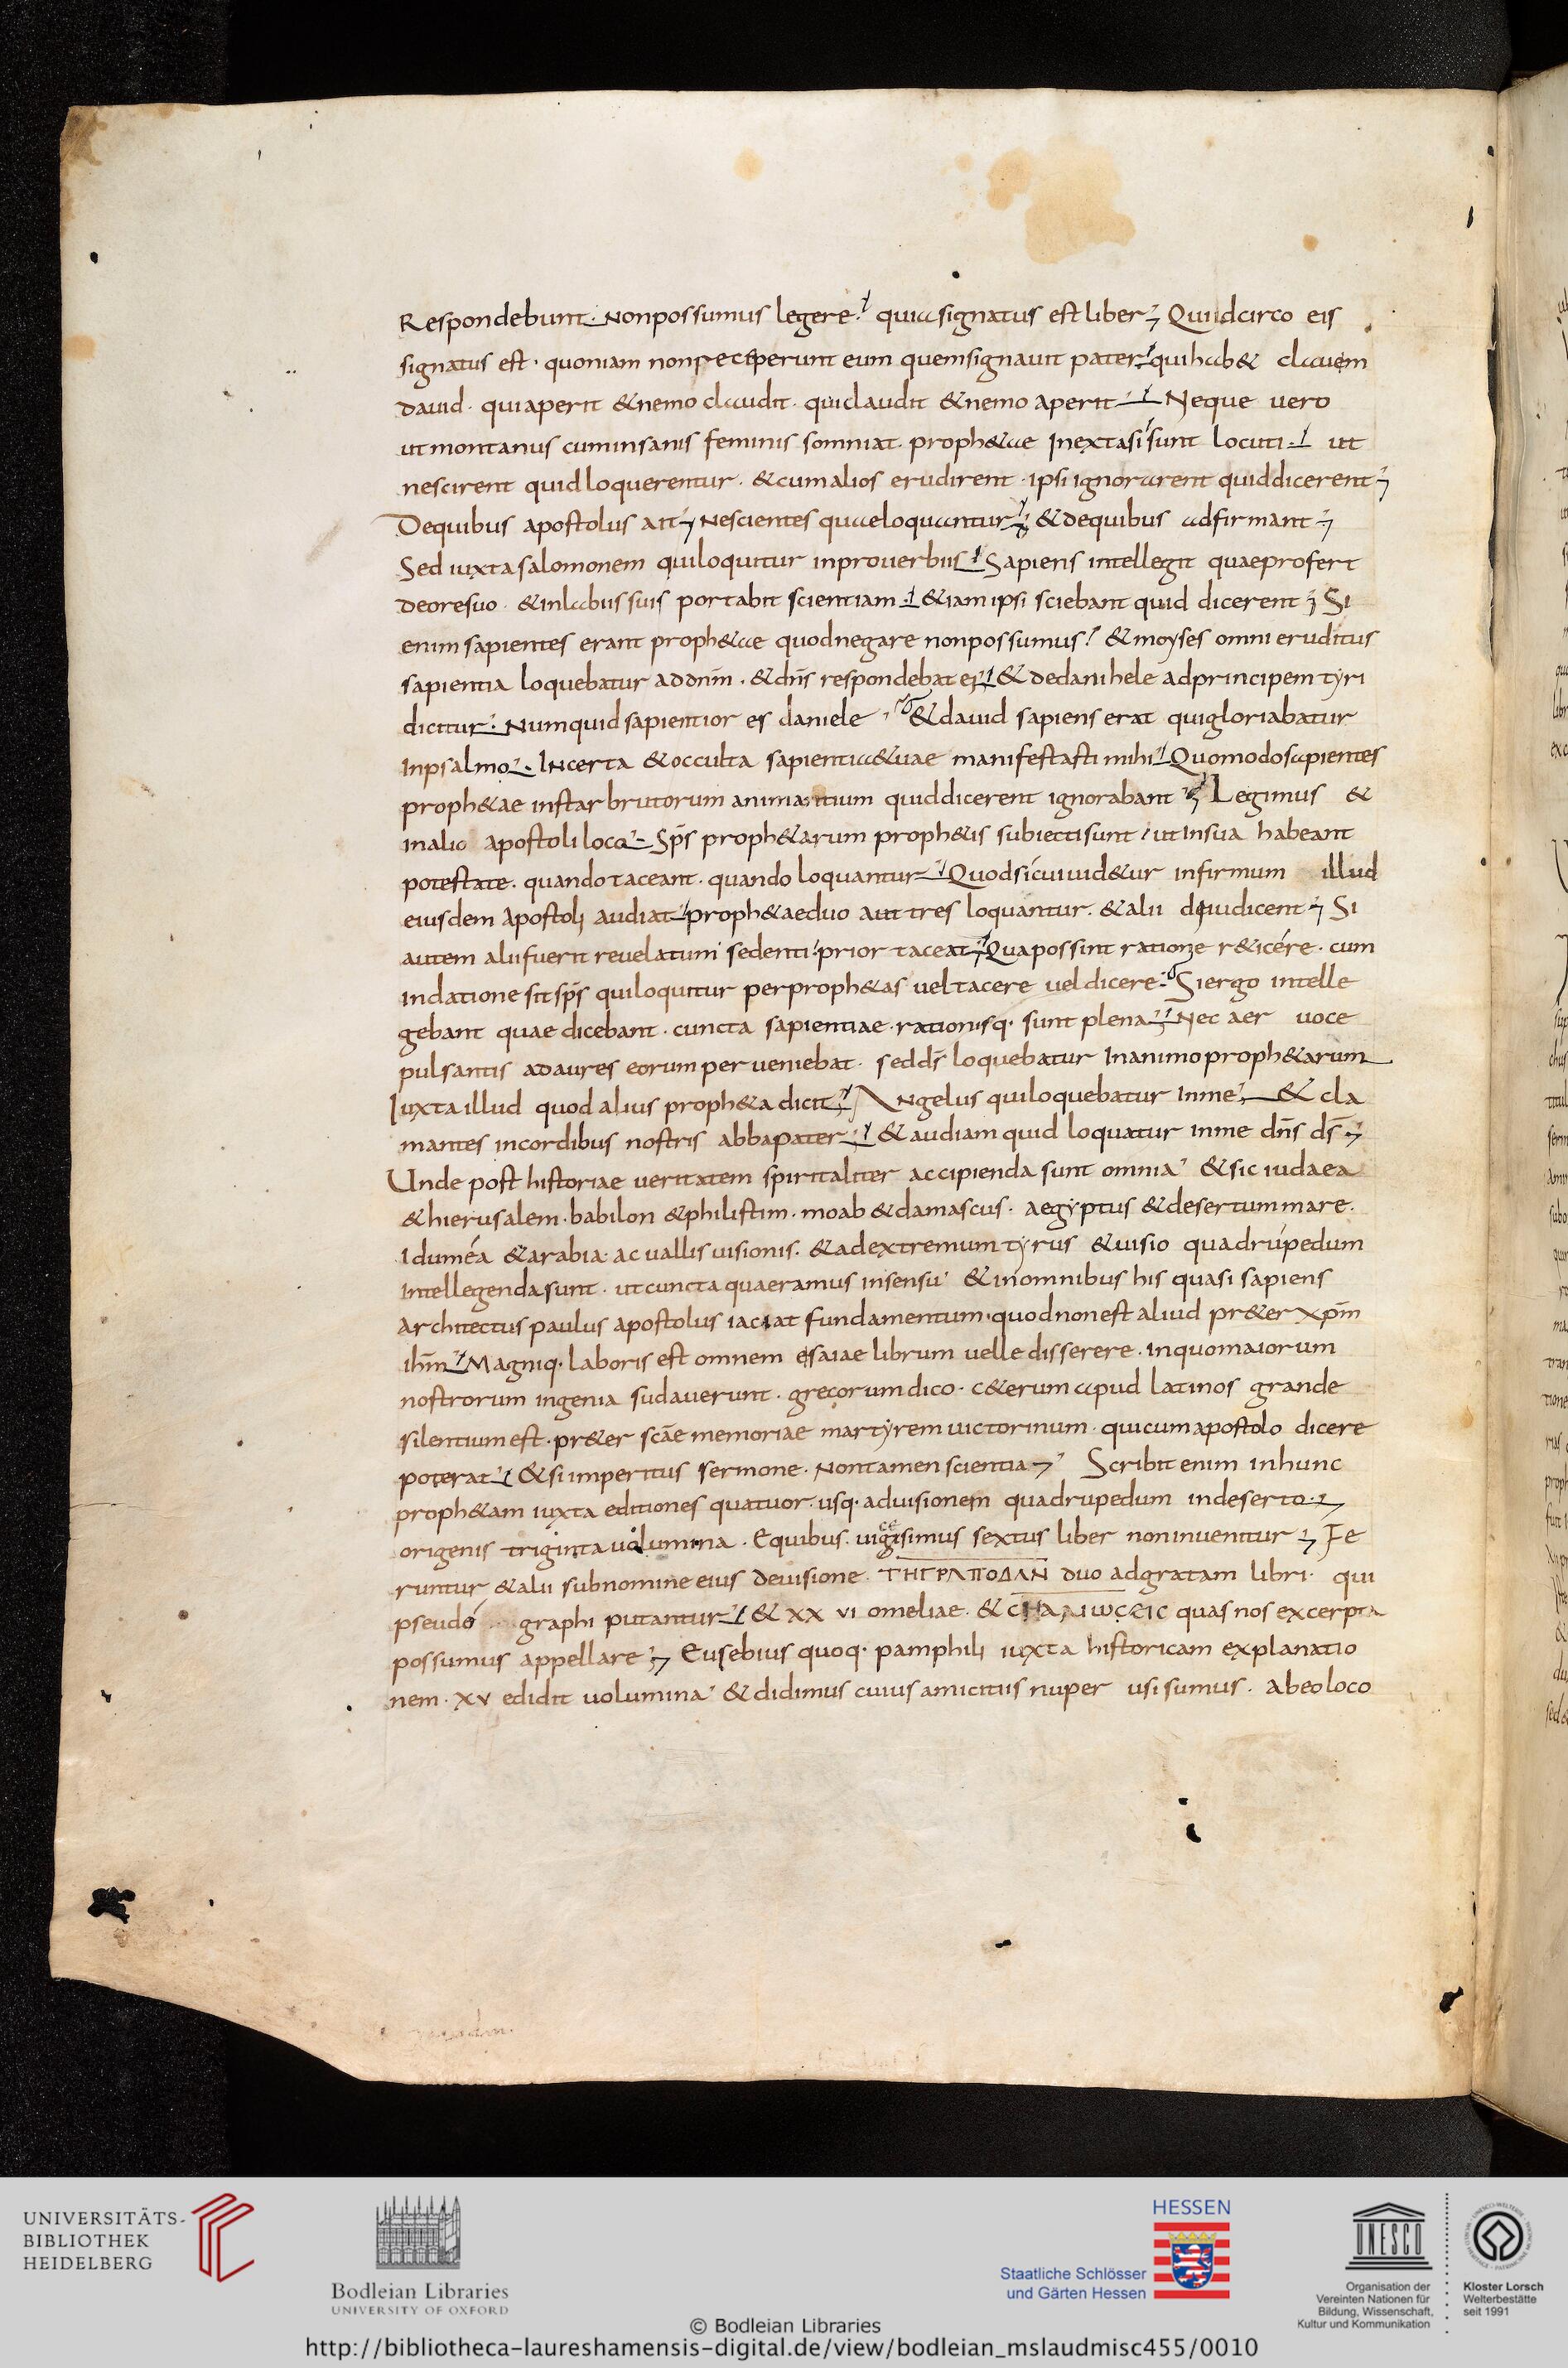 Respondebunt. Non possumus legere. quia signatus est liber; Quidcirco eis
signatus est. quoniam non receperunt eum quem signavit pater. qui hab& clavem
david. qui aperit & nemo claudit. qui claudit & nemo aperit. Neque vero
ut montanus cum insanis feminis somniat. proph&ae In extasi sunt locuti. ut
nescirent quid loquerentur. & cum alios erudirent. ipsi ignorarent quid dicerent;
De quibus apostolus ait; Nescientes quae loquantur; & de quibus adfirmant;
Sed iuxta salomonem qui loquitur in proverbiis. Sapiens intellegit quae profert
de ore suo. & in labiis suis portabit scientiam. & iam ipsi sciebant quid dicerent; Si
enim sapientes erant proph&ae quod negare non possumus. & moyses omni eruditus
sapientia loquebatur ad dn̄m. & dn̄s respondebat ei. & de danihele ad principem tyri
dicitur. Numquid sapientior es daniele. & david sapiens erat qui gloriabatur
In psalmo. Incerta & occulta sapientiae &uae manifestasti mihi. Quomodo sapientes
proph&ae instar brutorum animantium quid dicerent ignorabant; Legimus &
in alio apostoli loco. Sp̄s proph&arum proph&is subiecti sunt. ut In sua habeant
potestate. quando taceant. quando loquantur. Quod si cui vid&ur infirmum illud
eiusdem Apostoli audiat. proph&ae duo aut tres loquantur. & alii deiudicent; Si
autem alii fuerit revelatum sedenti. prior taceat; Qua possint ratione r&icére. cum
In datione sit sp̄s qui loquitur per proph&as vel tacere vel dicere. Si ergo intelle
gebant quae dicebant. cuncta sapientiae. rationisq. sunt plena; Nec aer voce
pulsantis ad aures eorum perveniebat. sed ds̄ loquebatur In animo proph&arum
Iuxta illud quod alius proph&a dicit; Angelus qui loquebatur In me; & cla
mantes in cordibus nostris abba pater; & audiam quid loquatur in me dn̄s ds̄;
Unde post historiae veritatem spiritaliter accipienda sunt omnia & sic iudaea
& hierusalem. babilon & philistim. moab & damascus. aegyptus & desertum mare.
Iduméa & arabia. ac vallis visionis. & ad extremum tyrus & visio quadrúpedum
Intellegenda sunt. ut cuncta quaeramus in sensu & in omnibus his quasi sapiens
architectus paulus apostolus iaciat fundamentum. quod non est aliud pr&er xp̄m
ihm̄. Magniq. laboris est omnem esaiae librum velle disserere. In quo maiorum
nostrorum ingenia sudaverunt. grecorum dico. c&erum apud latinos grande
silentium est. pr&er scāe memoriae martyrem victorinum. qui cum apostolo dicere
poterat. & si imperitus sermone. Non tamen scientia; Scribit enim in hunc
proph&am iuxta editiones quatuor. usq. ad visionem quadrupedum in deserto.
origenis triginta volumina. Equibus. vigisimus sextus liber non invenitur; Fe
runtur & alii sub nomine eius de visione. ΤΗΓΡΑΠΟΔΑΝ duo ad gratam libri. qui
pseudó graphi putantur. & XX VI omeliae. & CHΑΛΙωCΕΙC quas nos excerpta
possumus appellare; Eusebius quoq. pamphili iuxta historicam explanatio
nem. XV edidit volumina & didimus cuius amicitiis nuper usi sumus. Ab eo loco
UNIVERSITÄTS-
BIBLIOTHEK
HEIDELBERG
Bodleian Libraries
UNIVERSITY OF OXFORD
HESSEN
Staatliche Schlösser
und Gärten Hessen
UNESCO
Organisation der
Vereinten Nationen für
Bildung, Wissenschaft,
Kultur und Kommunikation
Kloster Lorsch
Welterbestätte
seit 1991
© Bodleian Libraries
http://bibliotheca-laureshamensis-digital.de/view/bodleian_mslaudmisc455/0010